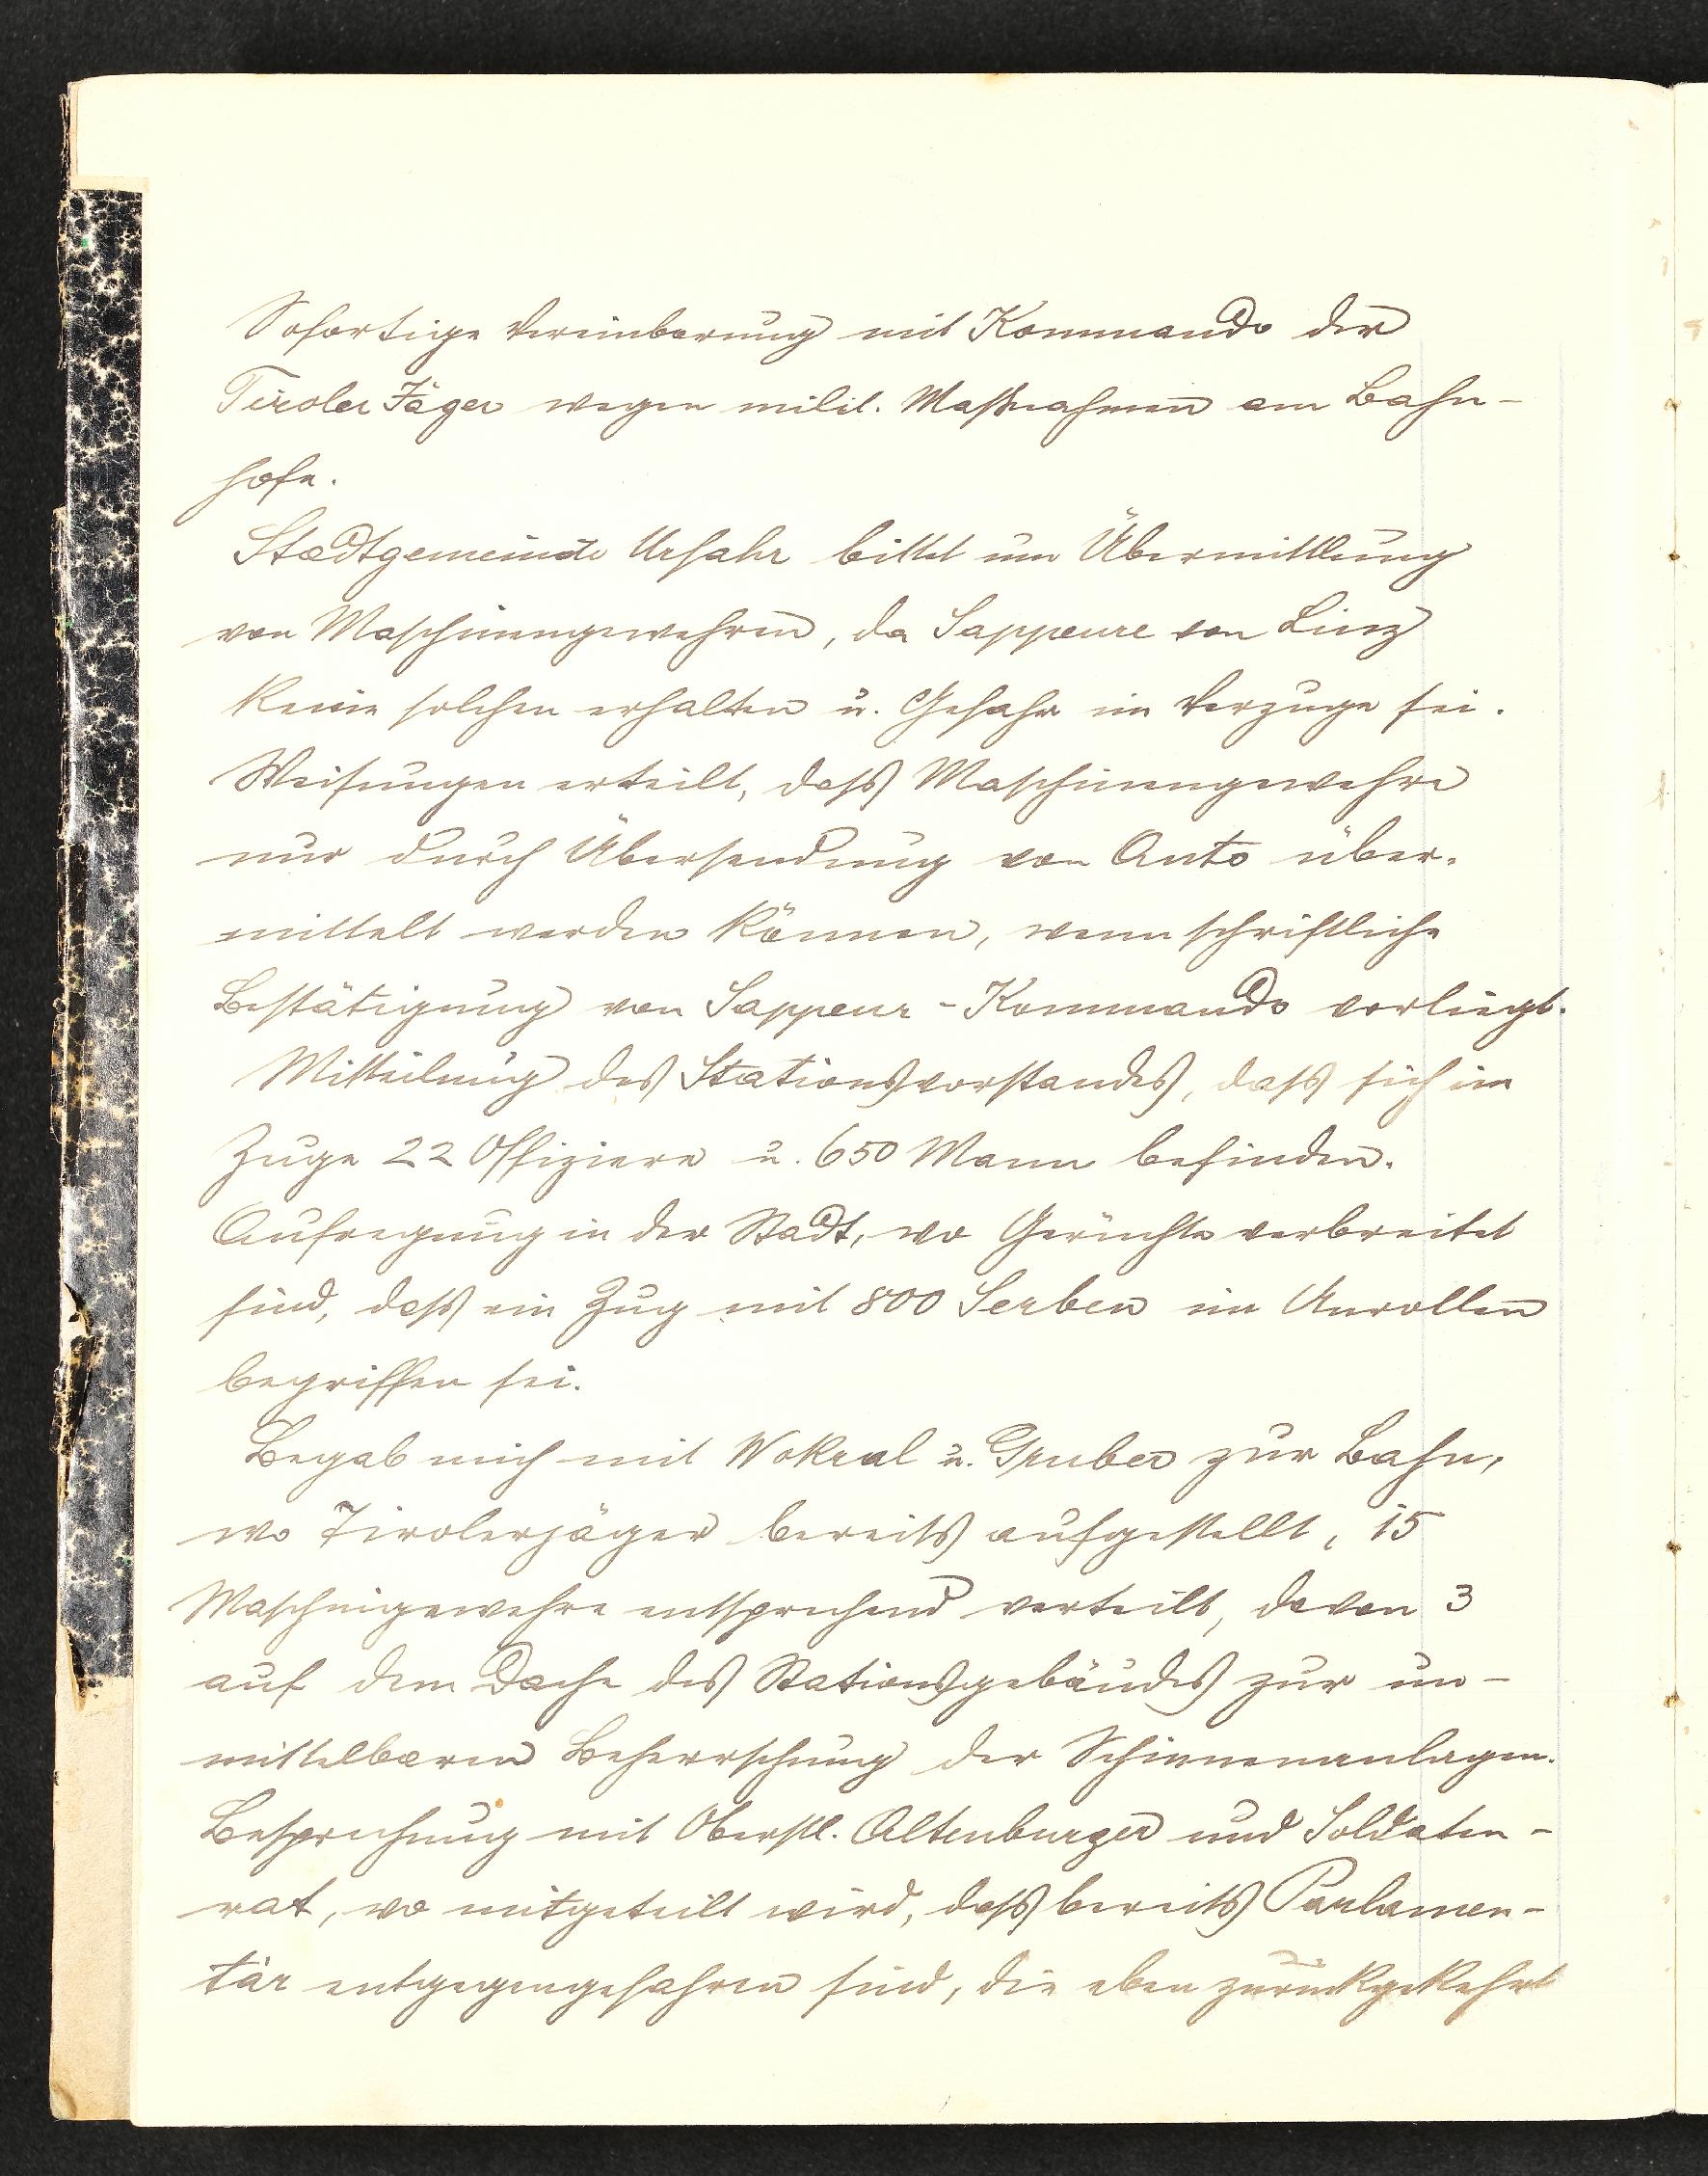 Sofortige Vereinbarung mit Kommando der
Tiroler Jäger wegen milit. Maßnahmen am Bahn-
hofe.
Stadtgemeinde Urfahr bittet um Übermittlung
von Maschinengewehren, da Sappeure von Linz
keine solchen erhalten u. Gefahr im Verzuge sei.
Weisungen erteilt, dass Maschinengewehre
nur durch Übersendung von Auto über-
mittelt werden können, wenn schriftliche
Bestätigung von Sappeur-Kommando vorliegt.
Mitteilung des Stationsvorstandes, dass sich im
Zuge 22 Offiziere u. 650 Mann befinden.
Aufregung in der Stadt, wo Gerüchte verbreitet
sind, dass ein Zug mit 800 Serben im Anrollen
begriffen sei.
Begab mich mit Wokral u. Gruber zur Bahn,
wo Tirolerjäger bereits aufgestellt, 15
Maschingewehre entsprechend verteilt, davon 3
auf dem Dache des Stationsgebäudes zur un-
mittelbaren Beherrschung der Schienenanlagen.
Besprechung mit Oberstl. Altenburger und Soldaten-
rat, wo mitgeteilt wird, dass bereits Parlamen-
tär entgegengefahren sind, die eben zurückgekehrt